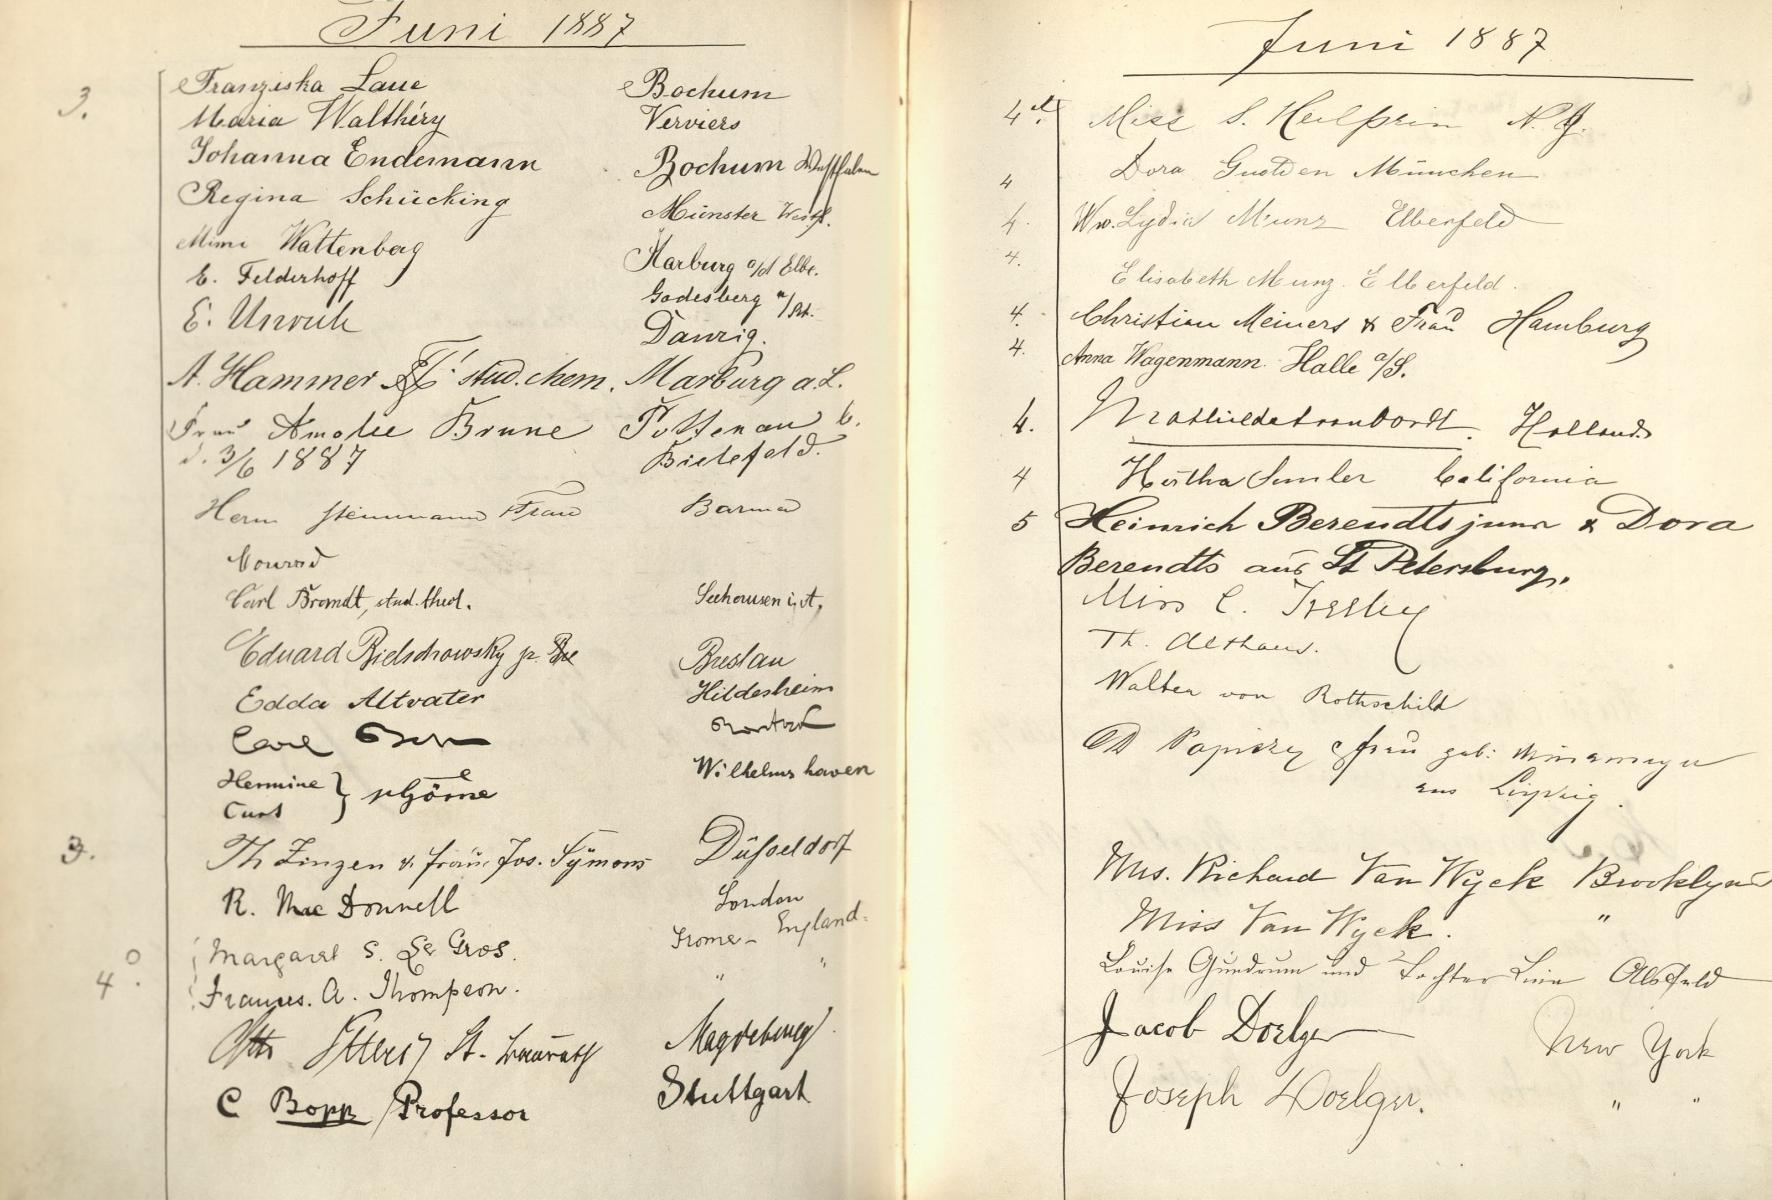 Juni 1887
3. Franziska Laue Bochum
Maria Walthéry Verviers
Johanna Endemann Bochum Westfalen
Regina Schücking Münster Westf.
Mimi Wattenberg Harburg a/d Elbe.
E. Felderhoff Godesberg a/Rh.
E. Unruh Danzig.
A. Hammer stud. chem. Marburg a. L.
Frau Amalie Brune b.
d. 3/6 1887 Bielefeld.
Herm Frau Barmen
Carl Brandt, stud. theol. Seehausen i. A.
Eduard Bielschowsky jr. Breslau
Edda Altvater Hildesheim
Carl
Hermine } Wilhelmshaven
Curt
3. Th Zinzen & Frau, Jos. Symons Düsseldorf
R. Mac Donnell London
Margaret S. Le Gros. Frome - England.
4. Frances. A. Thompson. " "
Otto Magdeburg
C Bopp Professor Stuttgart
Juni 1887
4. Miss S. Heilprin N. J.
4 Dora München
4. Ww. Lydia Munz Elberfeld
4. Elisabeth Munz. Elberfeld.
4. Christian Meiners & Frau Hamburg
4. Anna Wagenmann. Halle a/S.
4. Holland
4 Hertha Semler California
5 Heinrich Berendts junr & Dora
Berendts aus St Petersburg.
Miss C.
Th. Althaus.
Walter von Rothschild
Frau geb:
aus Leipzig.
Mrs. Richard Van Wyck Brooklyn
Miss Van Wyck. "
Louise Gundrum und Tochter Lina Alsfeld
Jacob Doelger New York
Joseph Doelger. " "